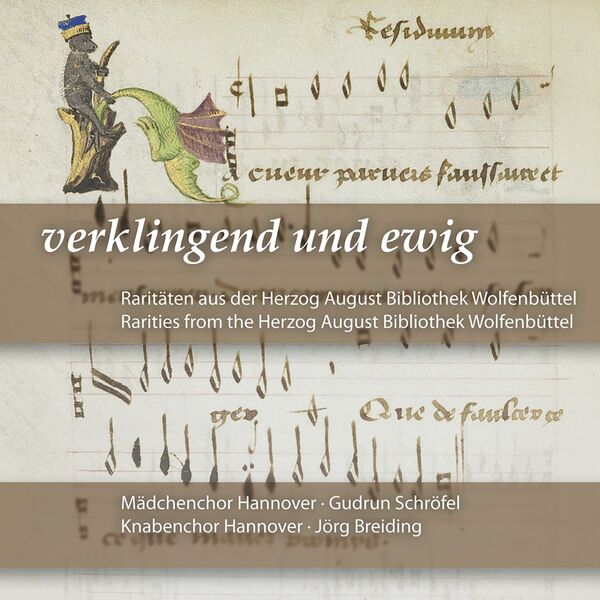 Residuum
cueur parvers faulsaire et
verklingend und ewig
Raritäten aus der Herzog August Bibliothek Wolfenbüttel
Rarities from the Herzog August Bibliothek Wolfenbüttel
Que de
Mädchenchor Hannover · Gudrun Schröfel
Knabenchor Hannover · Jörg Breiding
ce que